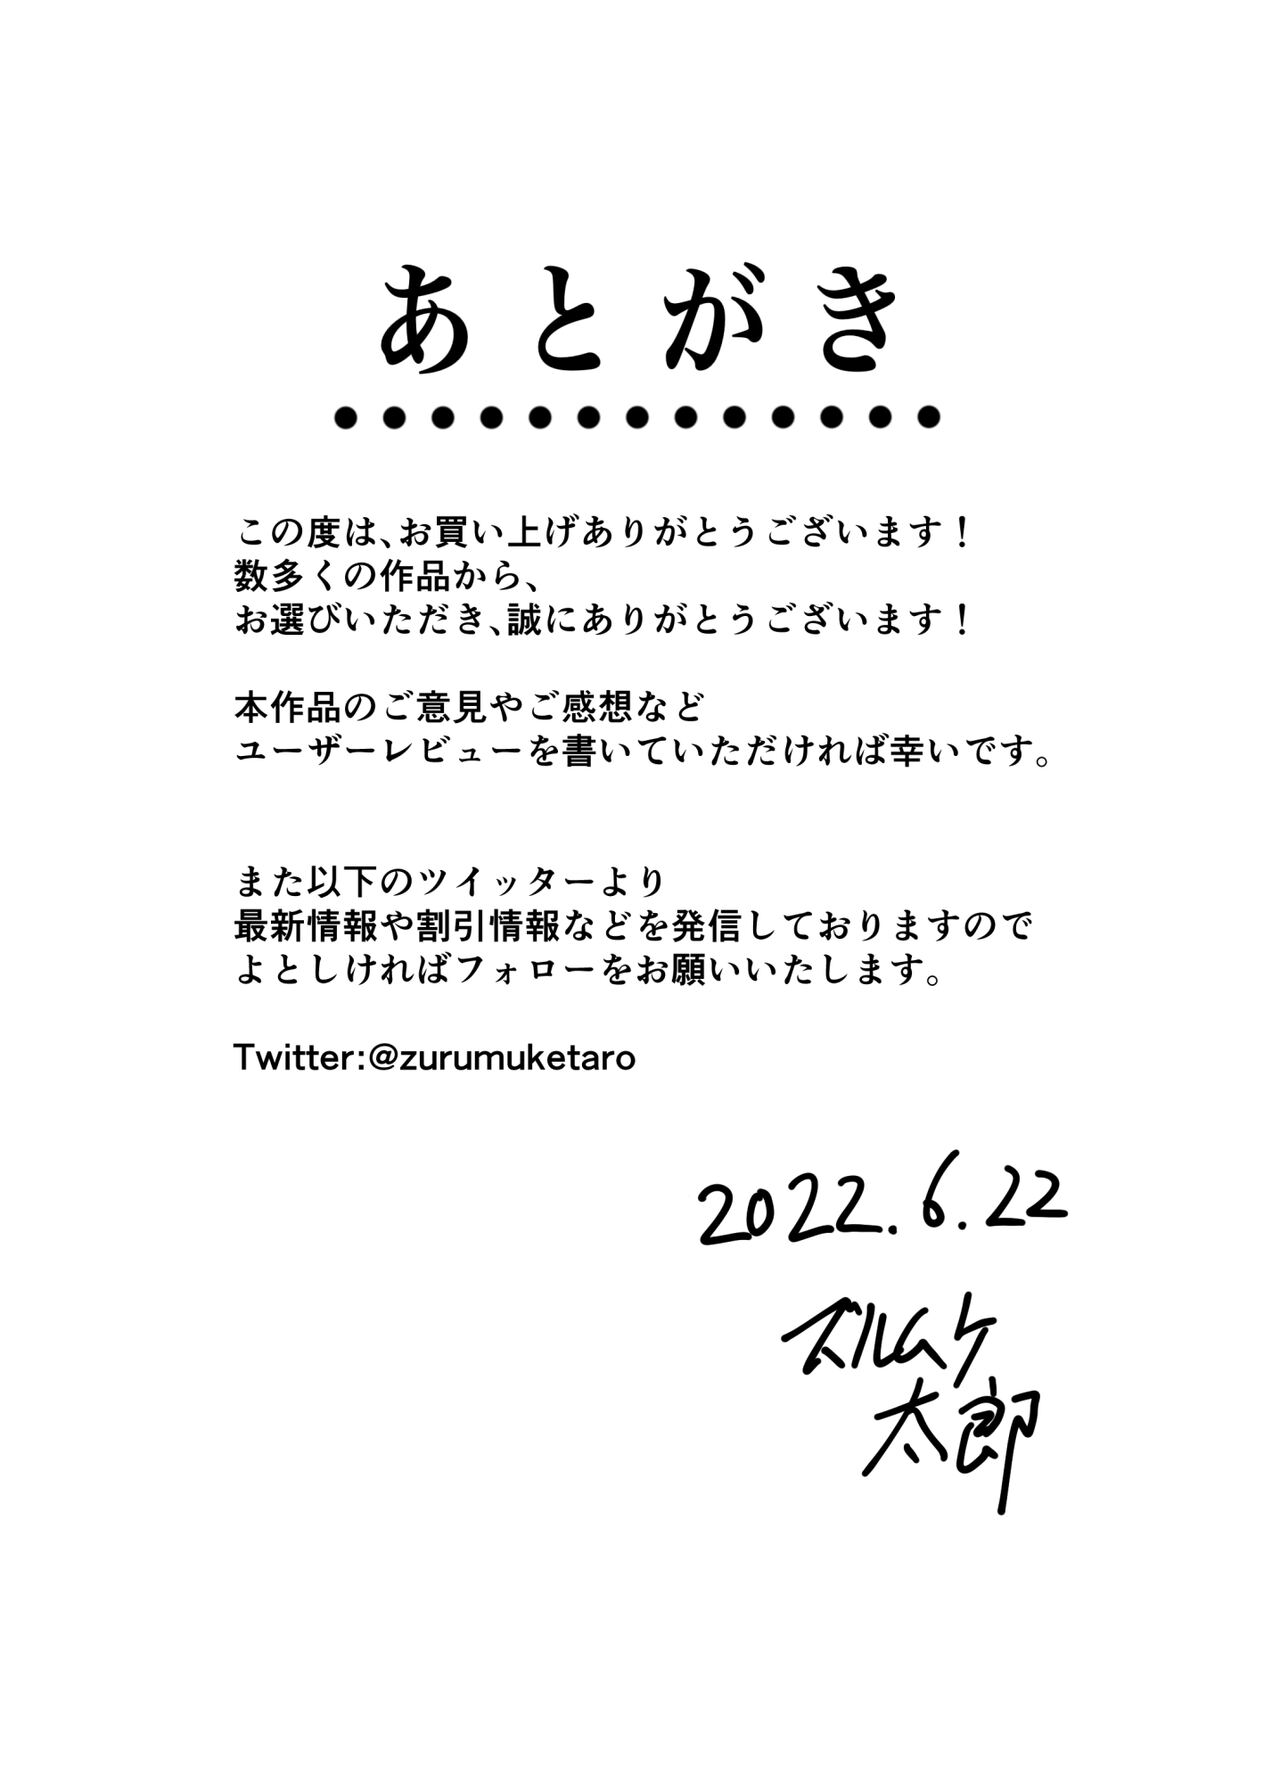 あとがき
この度は、お買い上げありがとうございます！
数多くの作品から、
お選びいただき、誠にありがとうございます！
本作品のご意見やご感想など
ユーザーレビューを書いていただければ幸いです。
また以下のツイッターより
最新情報や割引情報などを発信しておりますので
よとしければフォローをお願いいたします。
Twitter:@zurumuketaro
2022.6.22
ズルムケ
太郎